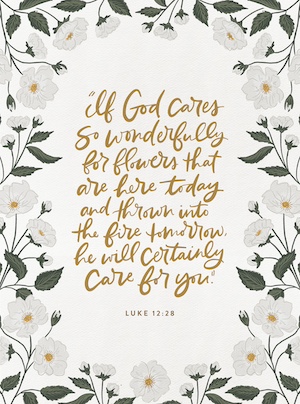 "If God cares
so wonderfully
for flowers that
are here today
and thrown into
the fire tomorrow,
he will certainly
care for you."
LUKE 12:28